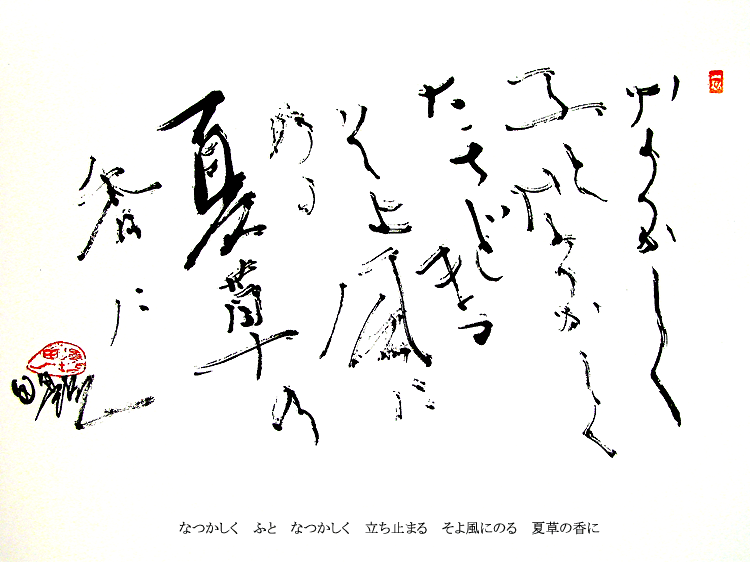 なつかしく
ふと なつかしく
たちどまる
そよ風に
のる
夏草の
香に
なつかしく　ふと　なつかしく　立ち止まる　そよ風にのる　夏草の香に